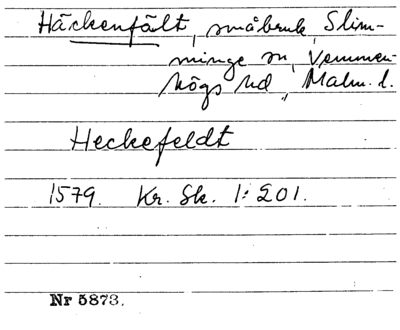 Häckenfält, småbruk, Slim-
minge sn, Vemmen-
högs hd., Malm. l.
Heckefeldt
1579. Kr. Sk. 1:201.
Nr 5873.